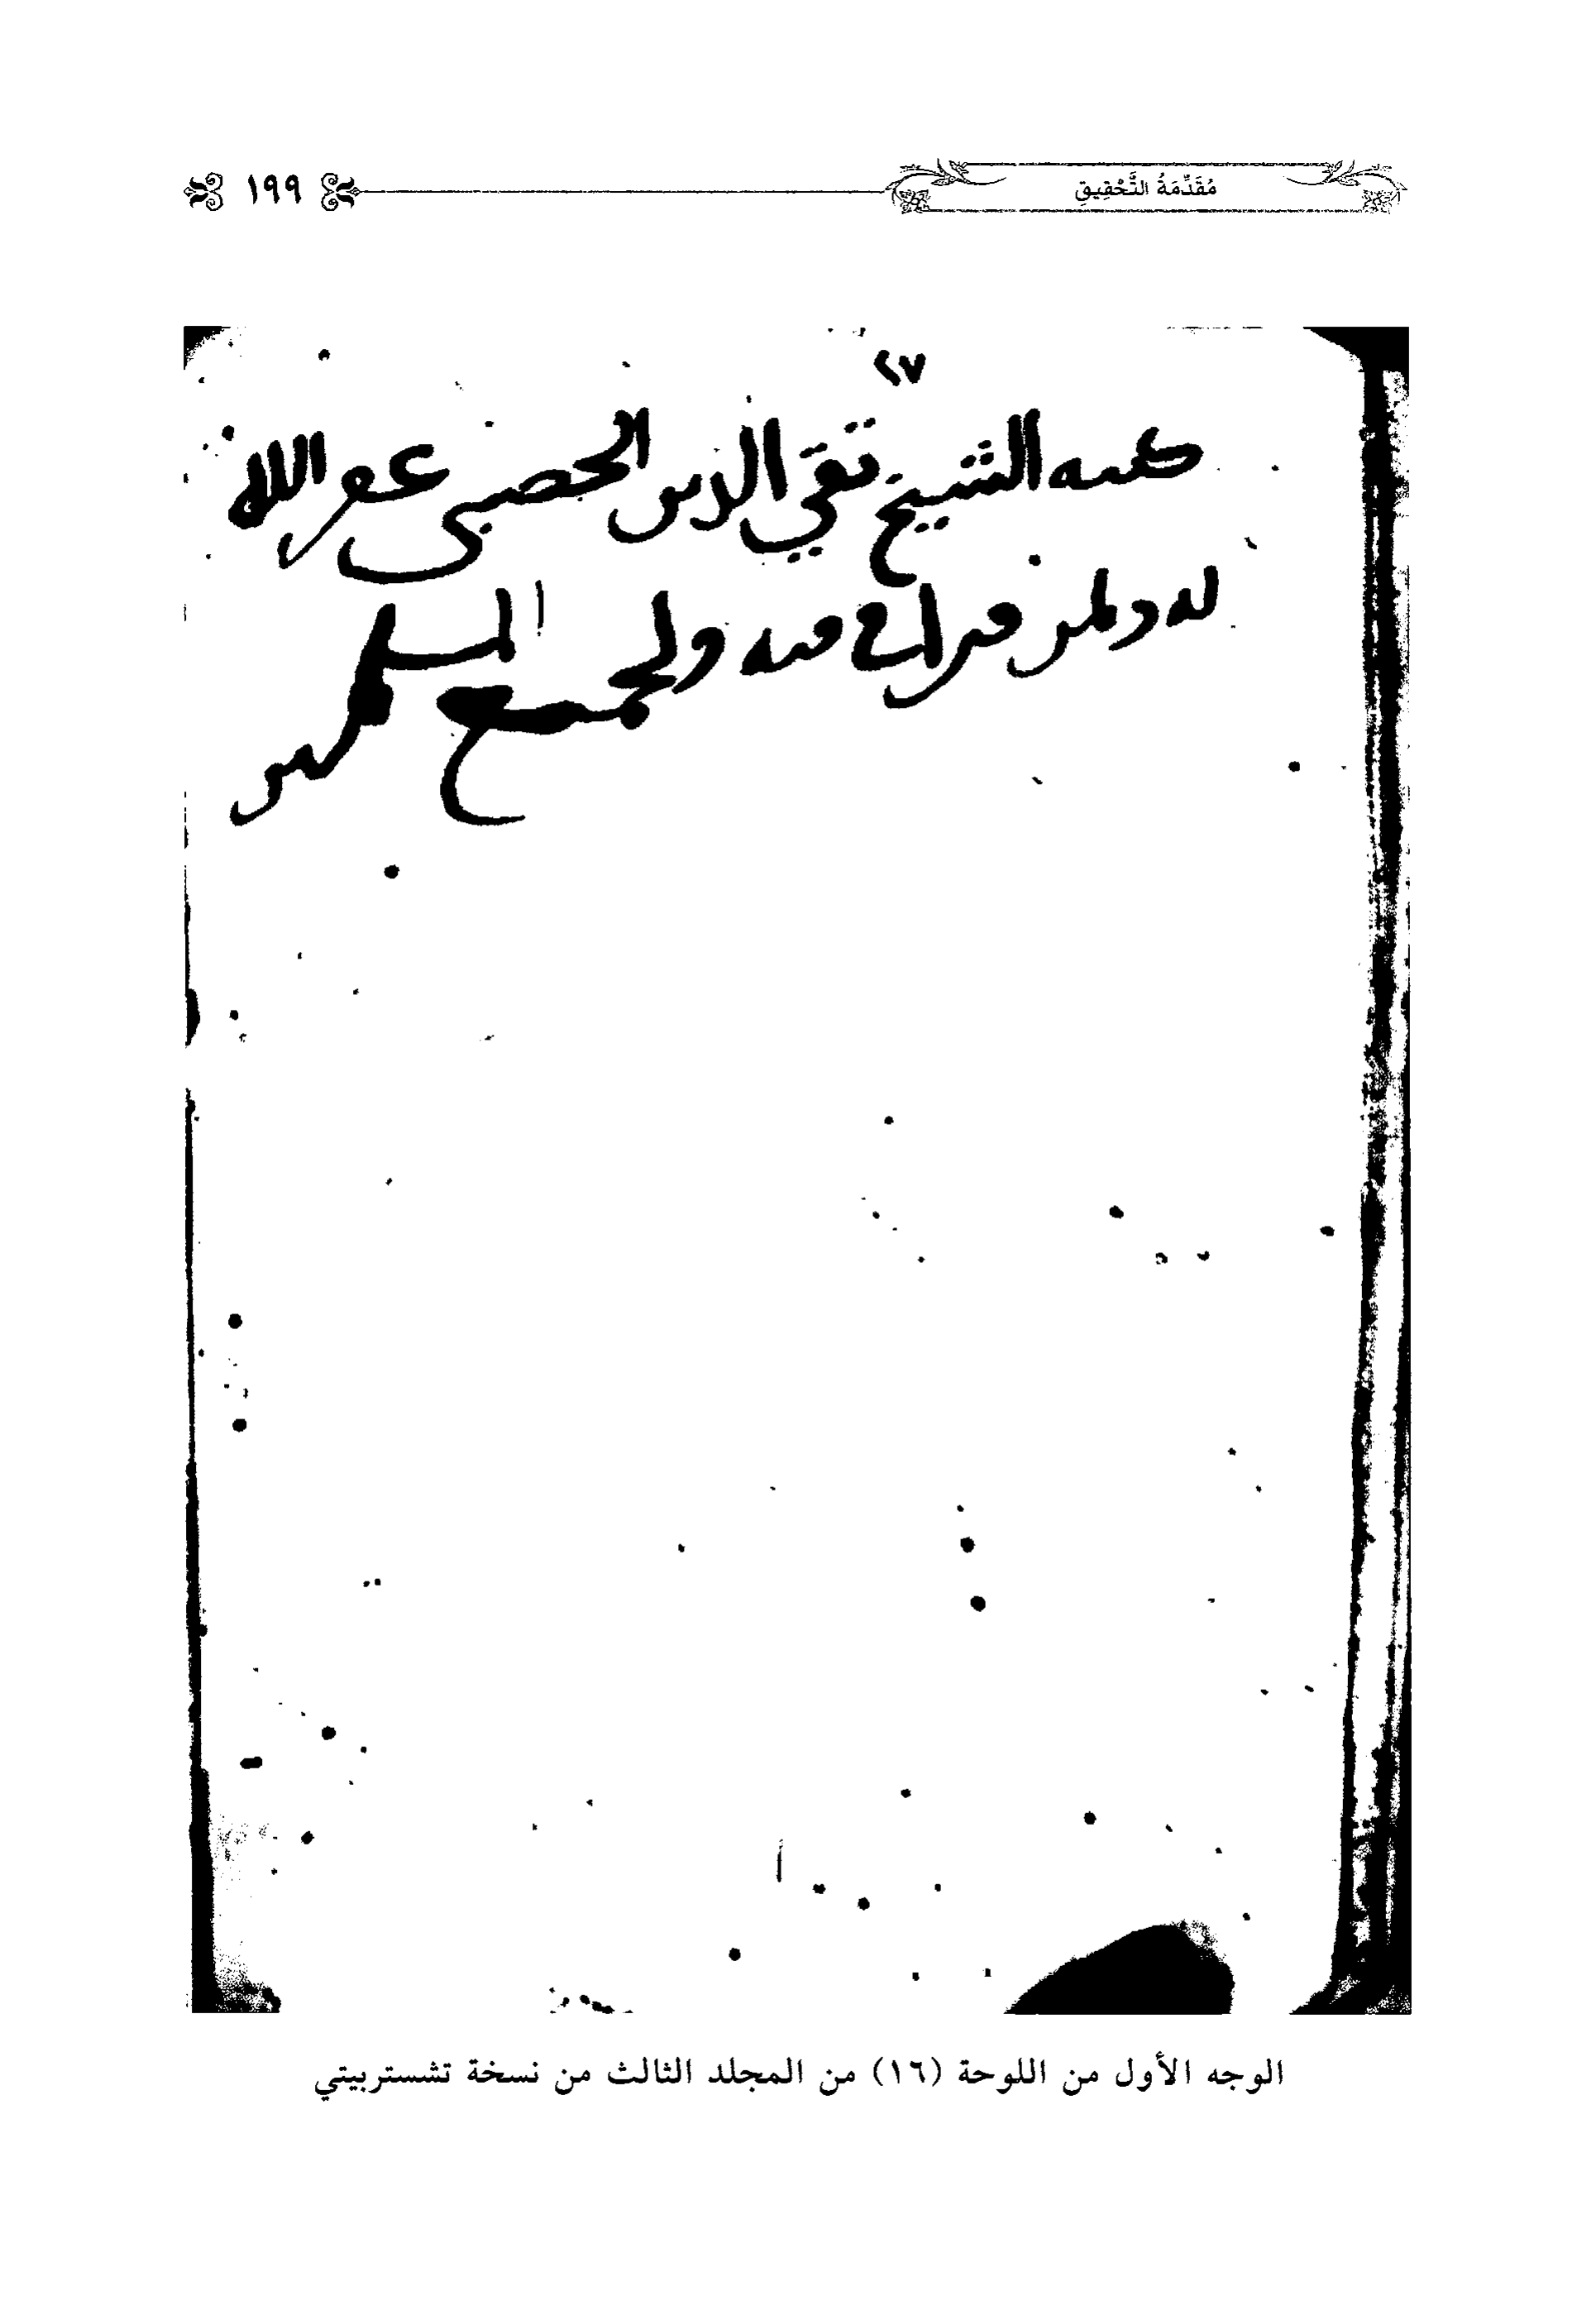 مُقَدِّمَةُ التَّحْقِيقِ
١٩٩
كتبه الشيخ تقي الدين الحصني غفر الله
له ولمن قرأ فيه ولجميع المسلمين
الوجه الأول من اللوحة (١٦) من المجلد الثالث من نسخة تشستربيتي